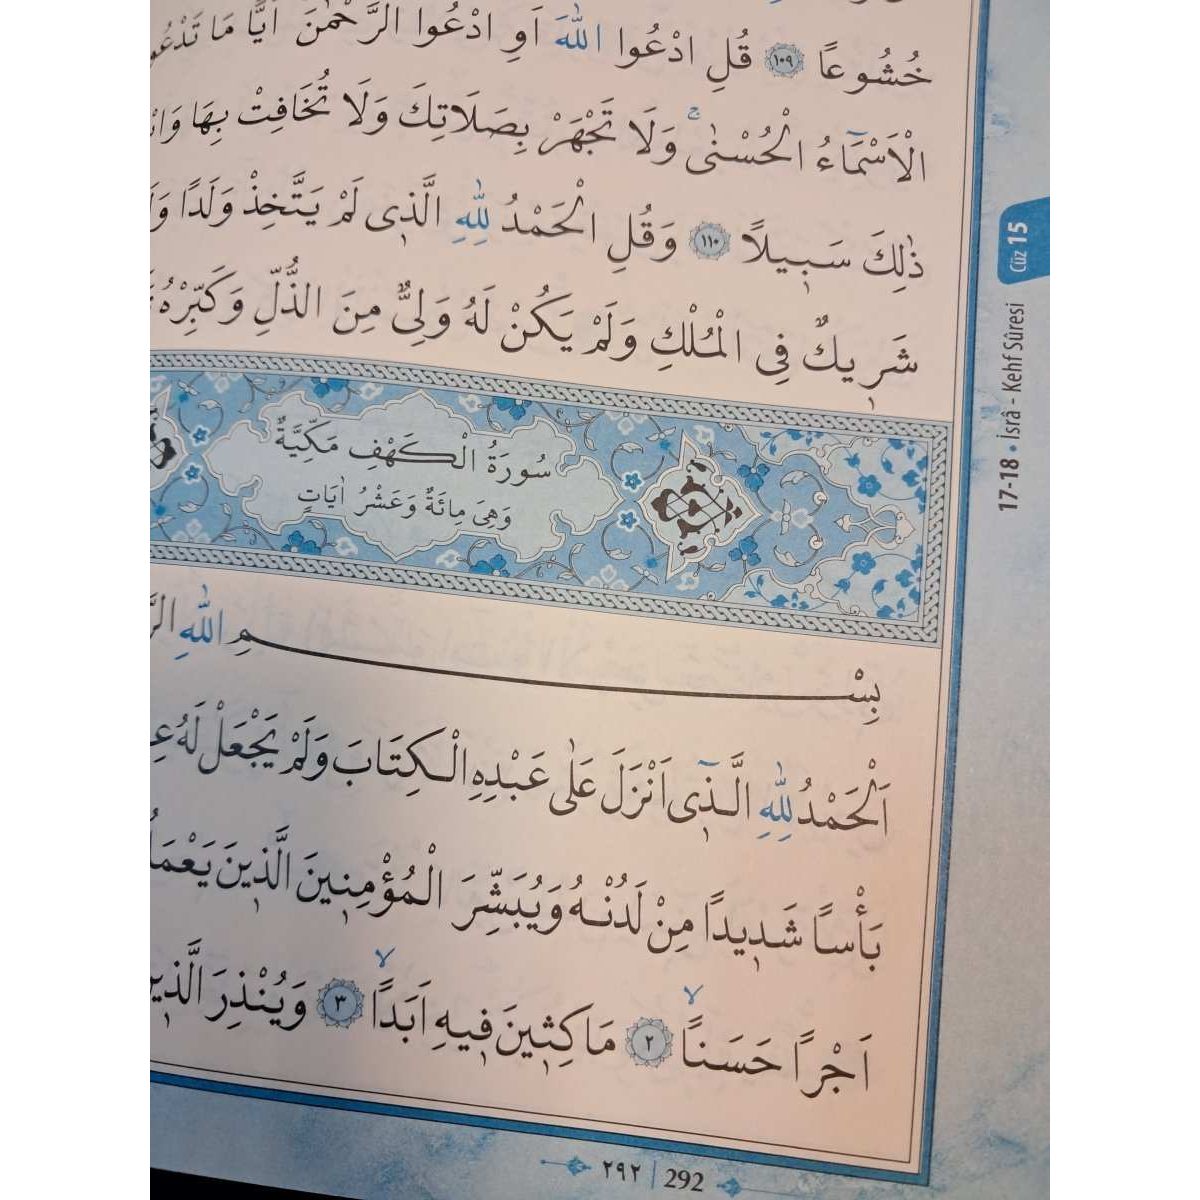 خُشُوعًا ﴿١٠٩﴾ قُلِ ادْعُوا اللّٰهَ اَوِ ادْعُوا الرَّحْمٰنَ اَيًّا مَا
الْاَسْمَٓاءُ الْحُسْنٰىۚ وَلَا تَجْهَرْ بِصَلَاتِكَ وَلَا تُخَافِتْ بِهَا
ذٰلِكَ سَب۪يلًا ﴿١١٠﴾ وَقُلِ الْحَمْدُ لِلّٰهِ الَّذ۪ى لَمْ يَتَّخِذْ وَلَدًا
شَر۪يكٌ فِى الْمُلْكِ وَلَمْ يَكُنْ لَهُ وَلِىٌّ مِنَ الذُّلِّ وَكَبِّرْهُ
سُورَةُ الْكَهْفِ مَكِّيَّةٌ
وَهِىَ مِائَةٌ وَعَشْرُ اٰيَاتٍ
بِسْمِ اللّٰهِ
اَلْحَمْدُ لِلّٰهِ الَّذ۪ٓى اَنْزَلَ عَلٰى عَبْدِهِ الْكِتَابَ وَلَمْ يَجْعَلْ لَهُ
بَأْسًا شَد۪يدًا مِنْ لَدُنْهُ وَيُبَشِّرَ الْمُؤْمِن۪ينَ الَّذ۪ينَ
اَجْرًا حَسَنًاۙ ﴿٢﴾ مَاكِث۪ينَ ف۪يهِ اَبَدًاۙ ﴿٣﴾ وَيُنْذِرَ
٢٩٢ | 292
Cüz 15
17-18 • İsrâ - Kehf Sûresi